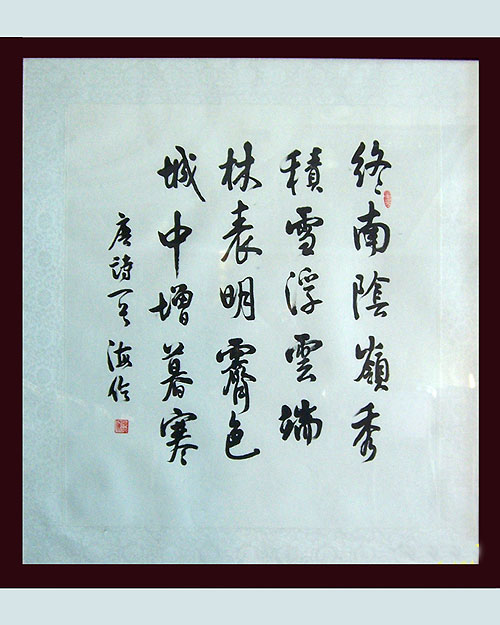 終南陰嶺秀
積雪浮雲端
林表明霽色
城中增暮寒
唐詩一首 海伦